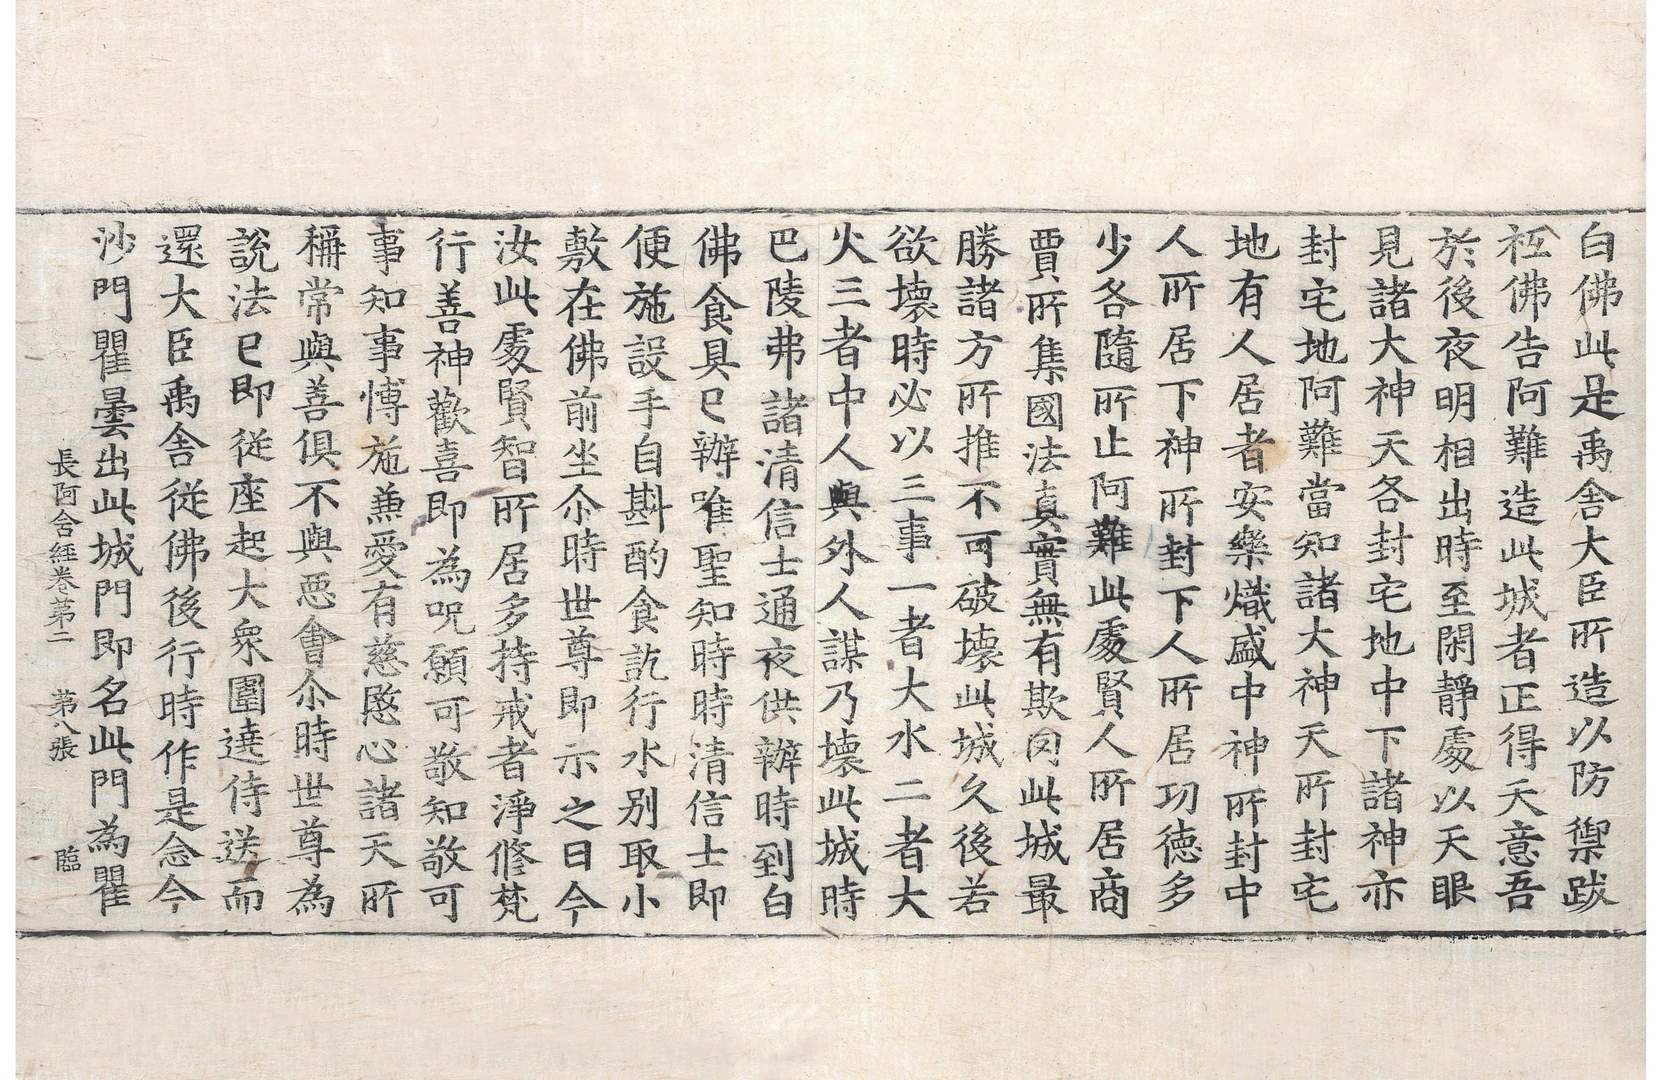 白佛此是禹舍大臣所造以防禦跋
祇佛告阿難造此城者正得天意吾
於後夜明相出時至閑靜處以天眼
見諸大神天各封宅地中下諸神亦
封宅地阿難當知諸大神天所封宅
地有人居者安樂熾盛中神所封中
人所居下神所封下人所居功德多
少各隨所止阿難此處賢人所居商
賈所集國法真實無有欺罔此城最
勝諸方所推不可破壞此城久後若
欲壞時必以三事一者大水二者大
火三者中人與外人謀乃壞此城時
巴陵弗諸清信士通夜供辦時到白
佛食具已辦唯聖知時時清信士即
便施設手自斟酌食訖行水別取小
敷在佛前坐尒時世尊即示之曰今
汝此處賢智所居多持戒者淨修梵
行善神歡喜即為呪願可敬知敬可
事知事博施兼愛有慈愍心諸天所
稱常與善俱不與惡會尒時世尊為
說法已即從座起大眾圍遶侍送而
還大臣禹舍從佛後行時作是念今
沙門瞿曇出此城門即名此門為瞿
長阿含經卷第二 第八張 臨